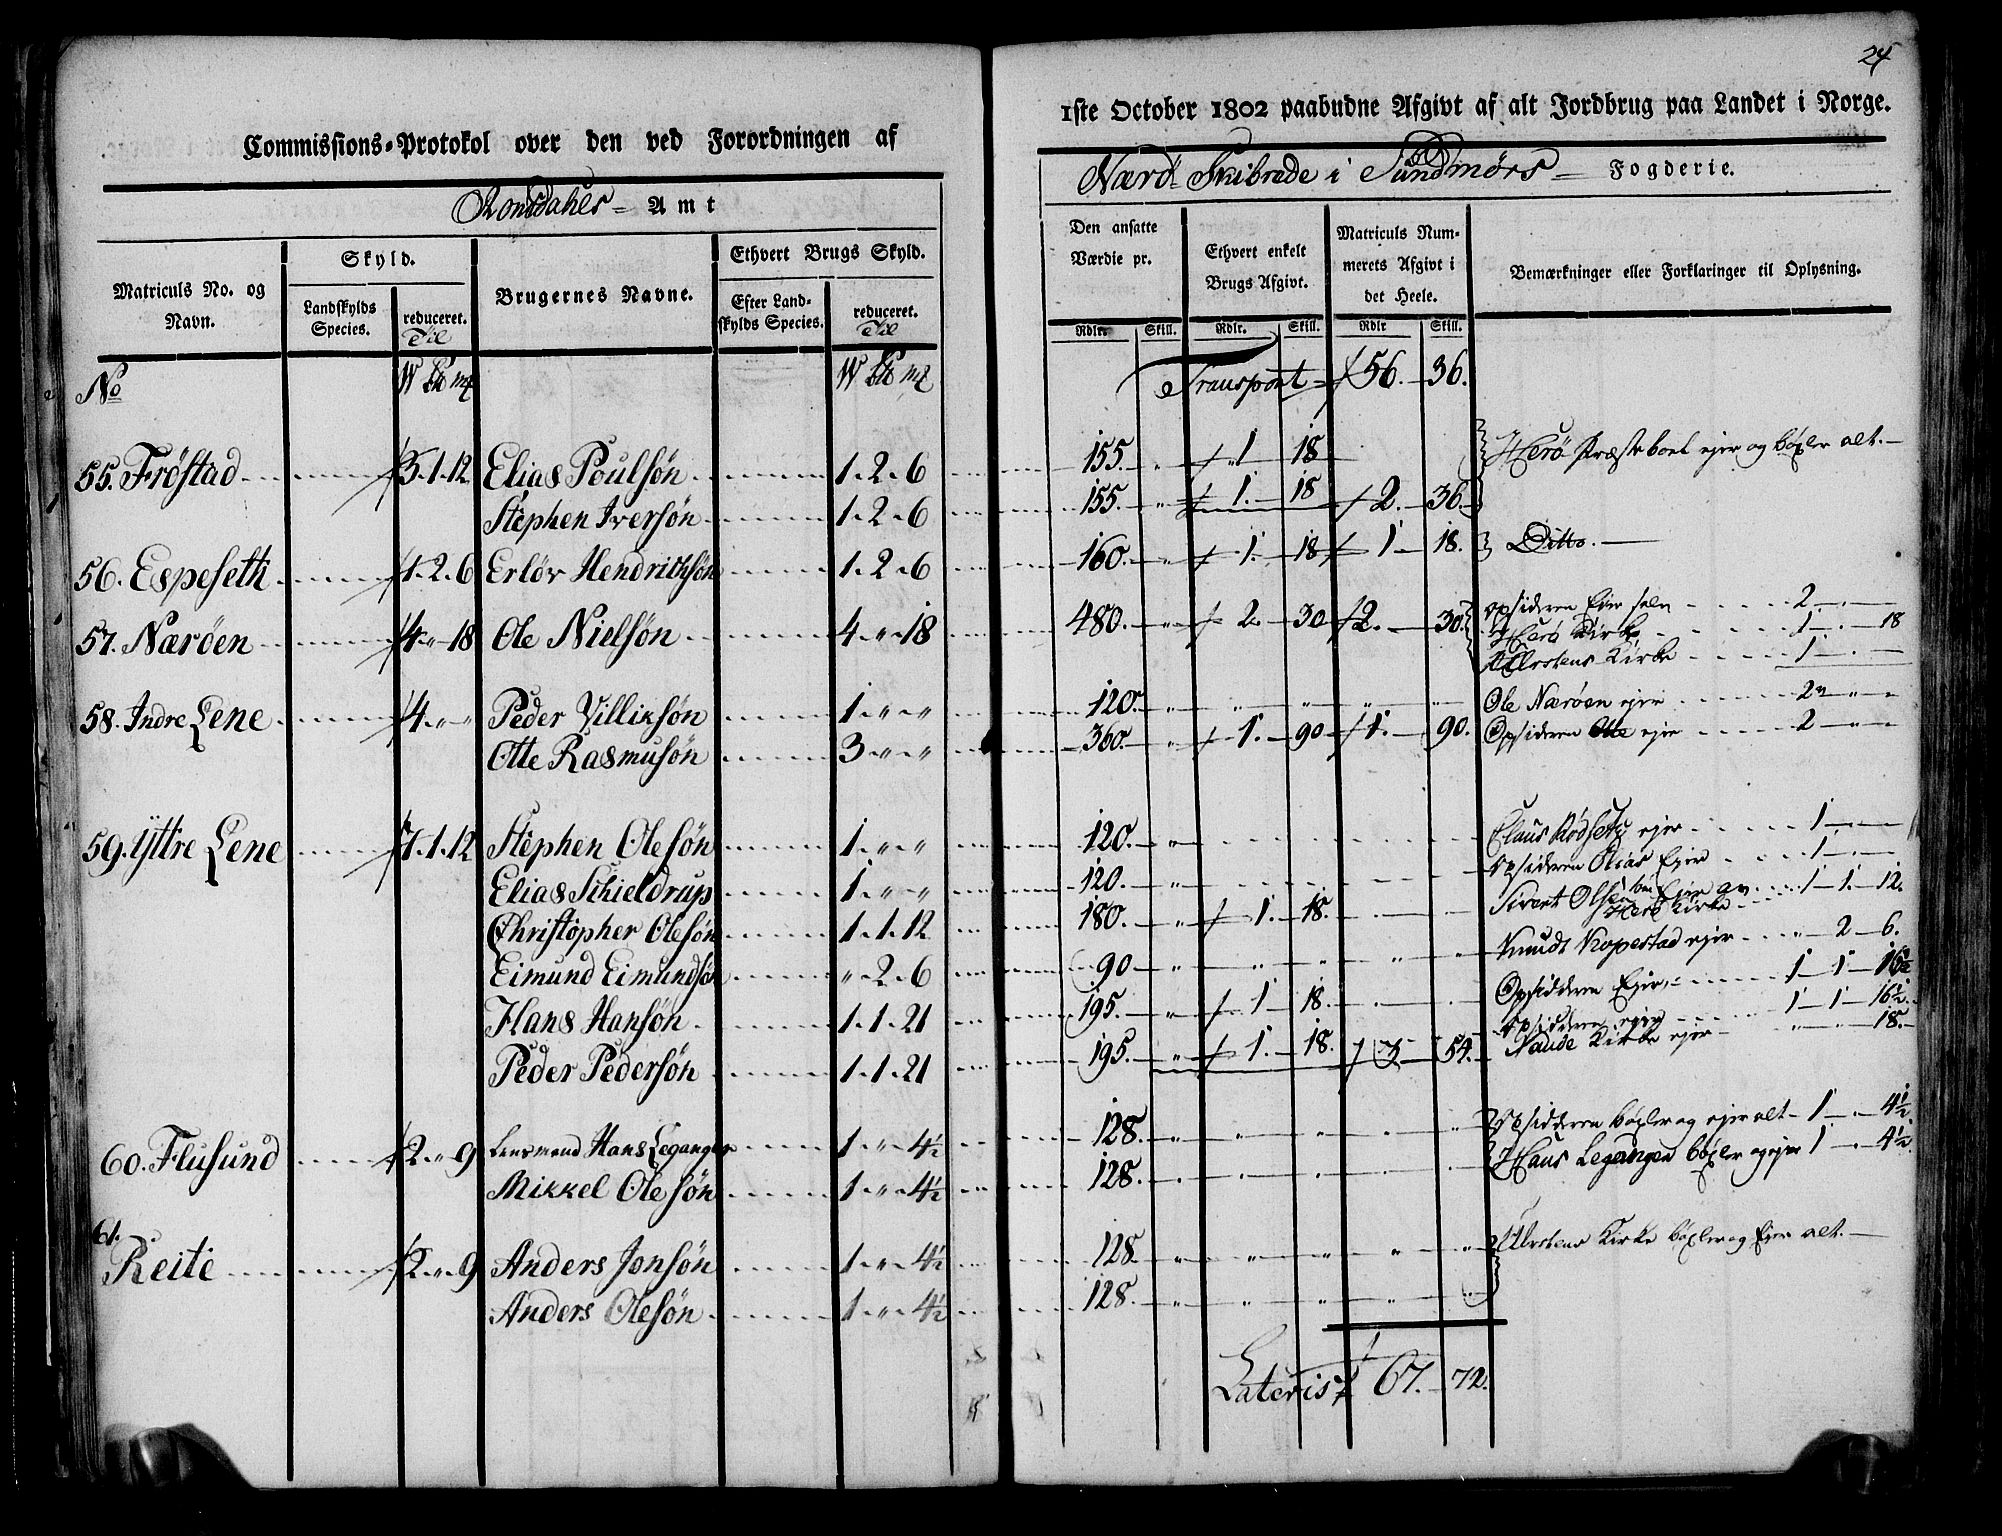 Commissions-Protokol over den ved Forordningen af
Romsdahls Amt
Matriculs No. og Navn.
Skyld.
Landskylds Species.
reduceret. Til
Brugernes Navne.
Ethvert Brugs Skyld.
Efter Landskylds Species.
reduceret. Til
No
W pd mk
W pd mk
55. Frøstad 3. 1. 12 Elias Poulsøn 1. 2. 6
Stephen Iversøn 1. 2. 6
56. Espeseth 1. 2. 6 Erløv Hendrichsøn 1. 2. 6
57. Nærøen 4. " 18 Ole Nielsøn 4. " 18
58. Indre Lene 4. " " Peder Villiksøn 1. " "
Otte Rasmusøn 3. " "
59. Yttre Lene 7. 1. 12 Stephen Olesøn 1. " "
Elias Schieldrup 1. " "
Christopher Olesøn 1. 1. 12
Eimund Eimundsøn " 2. 6
Hans Hansøn 1. 1. 21
Peder Pedersøn 1. 1. 21
60. Flusund 2. " 9 Lensmand Hans Leganger 1. " 4½
Mikkel Olesøn 1. " 4½
61. Reite 2. " 9 Anders Jonsøn 1. " 4½
Anders Olesøn 1. " 4½
24
1ste October 1802 paabudne Afgivt af alt Jordbrug paa Landet i Norge.
Nærø Skibrede i Sundmørs Fogderie.
Den ansatte Værdie pr.
Ethvert enkelt Brugs Afgivt.
Matriculs Nummerets Afgivt i det Heele.
Bemærkninger eller Forklaringer til Oplysning.
Rdlr. Skill. Rdlr. Skill. Rdlr Skill.
Transport 56. 36.
155. " 1 18 Herø Præsteboel ejer og bøxler alt.
155. " 1. 18 2. 36.
160. " 1. 18 1 18. Ditto.
480. " 2. 30 2. 30. opsidderen Ejer selv 2
Herø Kirke 1 18
Ulvstens Kirke 1
120. " " " " " Ole Nærøen ejer 2 " "
360. " 1. 90 1. 90. Opsidderen Otte ejer 2 " "
120. " Claus Rødsety ejer 1
120. " opsidderen Elias Ejer 1
180. " 1. 18. Sivert Olsen Ejer 1 1. 12.
Herø Kirke
90 " " " " " Knudt Kopestad ejer " 2 6.
195. " 1 18. Opsidderen Ejer 1 1 16½
195. " 1. 18. 3 54. opsidderen ejer 1 1 16½
Kirke ejer " " 18.
128. " " " " " Opsidderen bøxler og ejer alt 1 " 4½
128. Hans Leganger bøxler og ejer 1 " 4½
128. " " " " " Ulvstens Kirke bøxler og Ejer alt.
128. " " " " "
Lateris 67. 72.